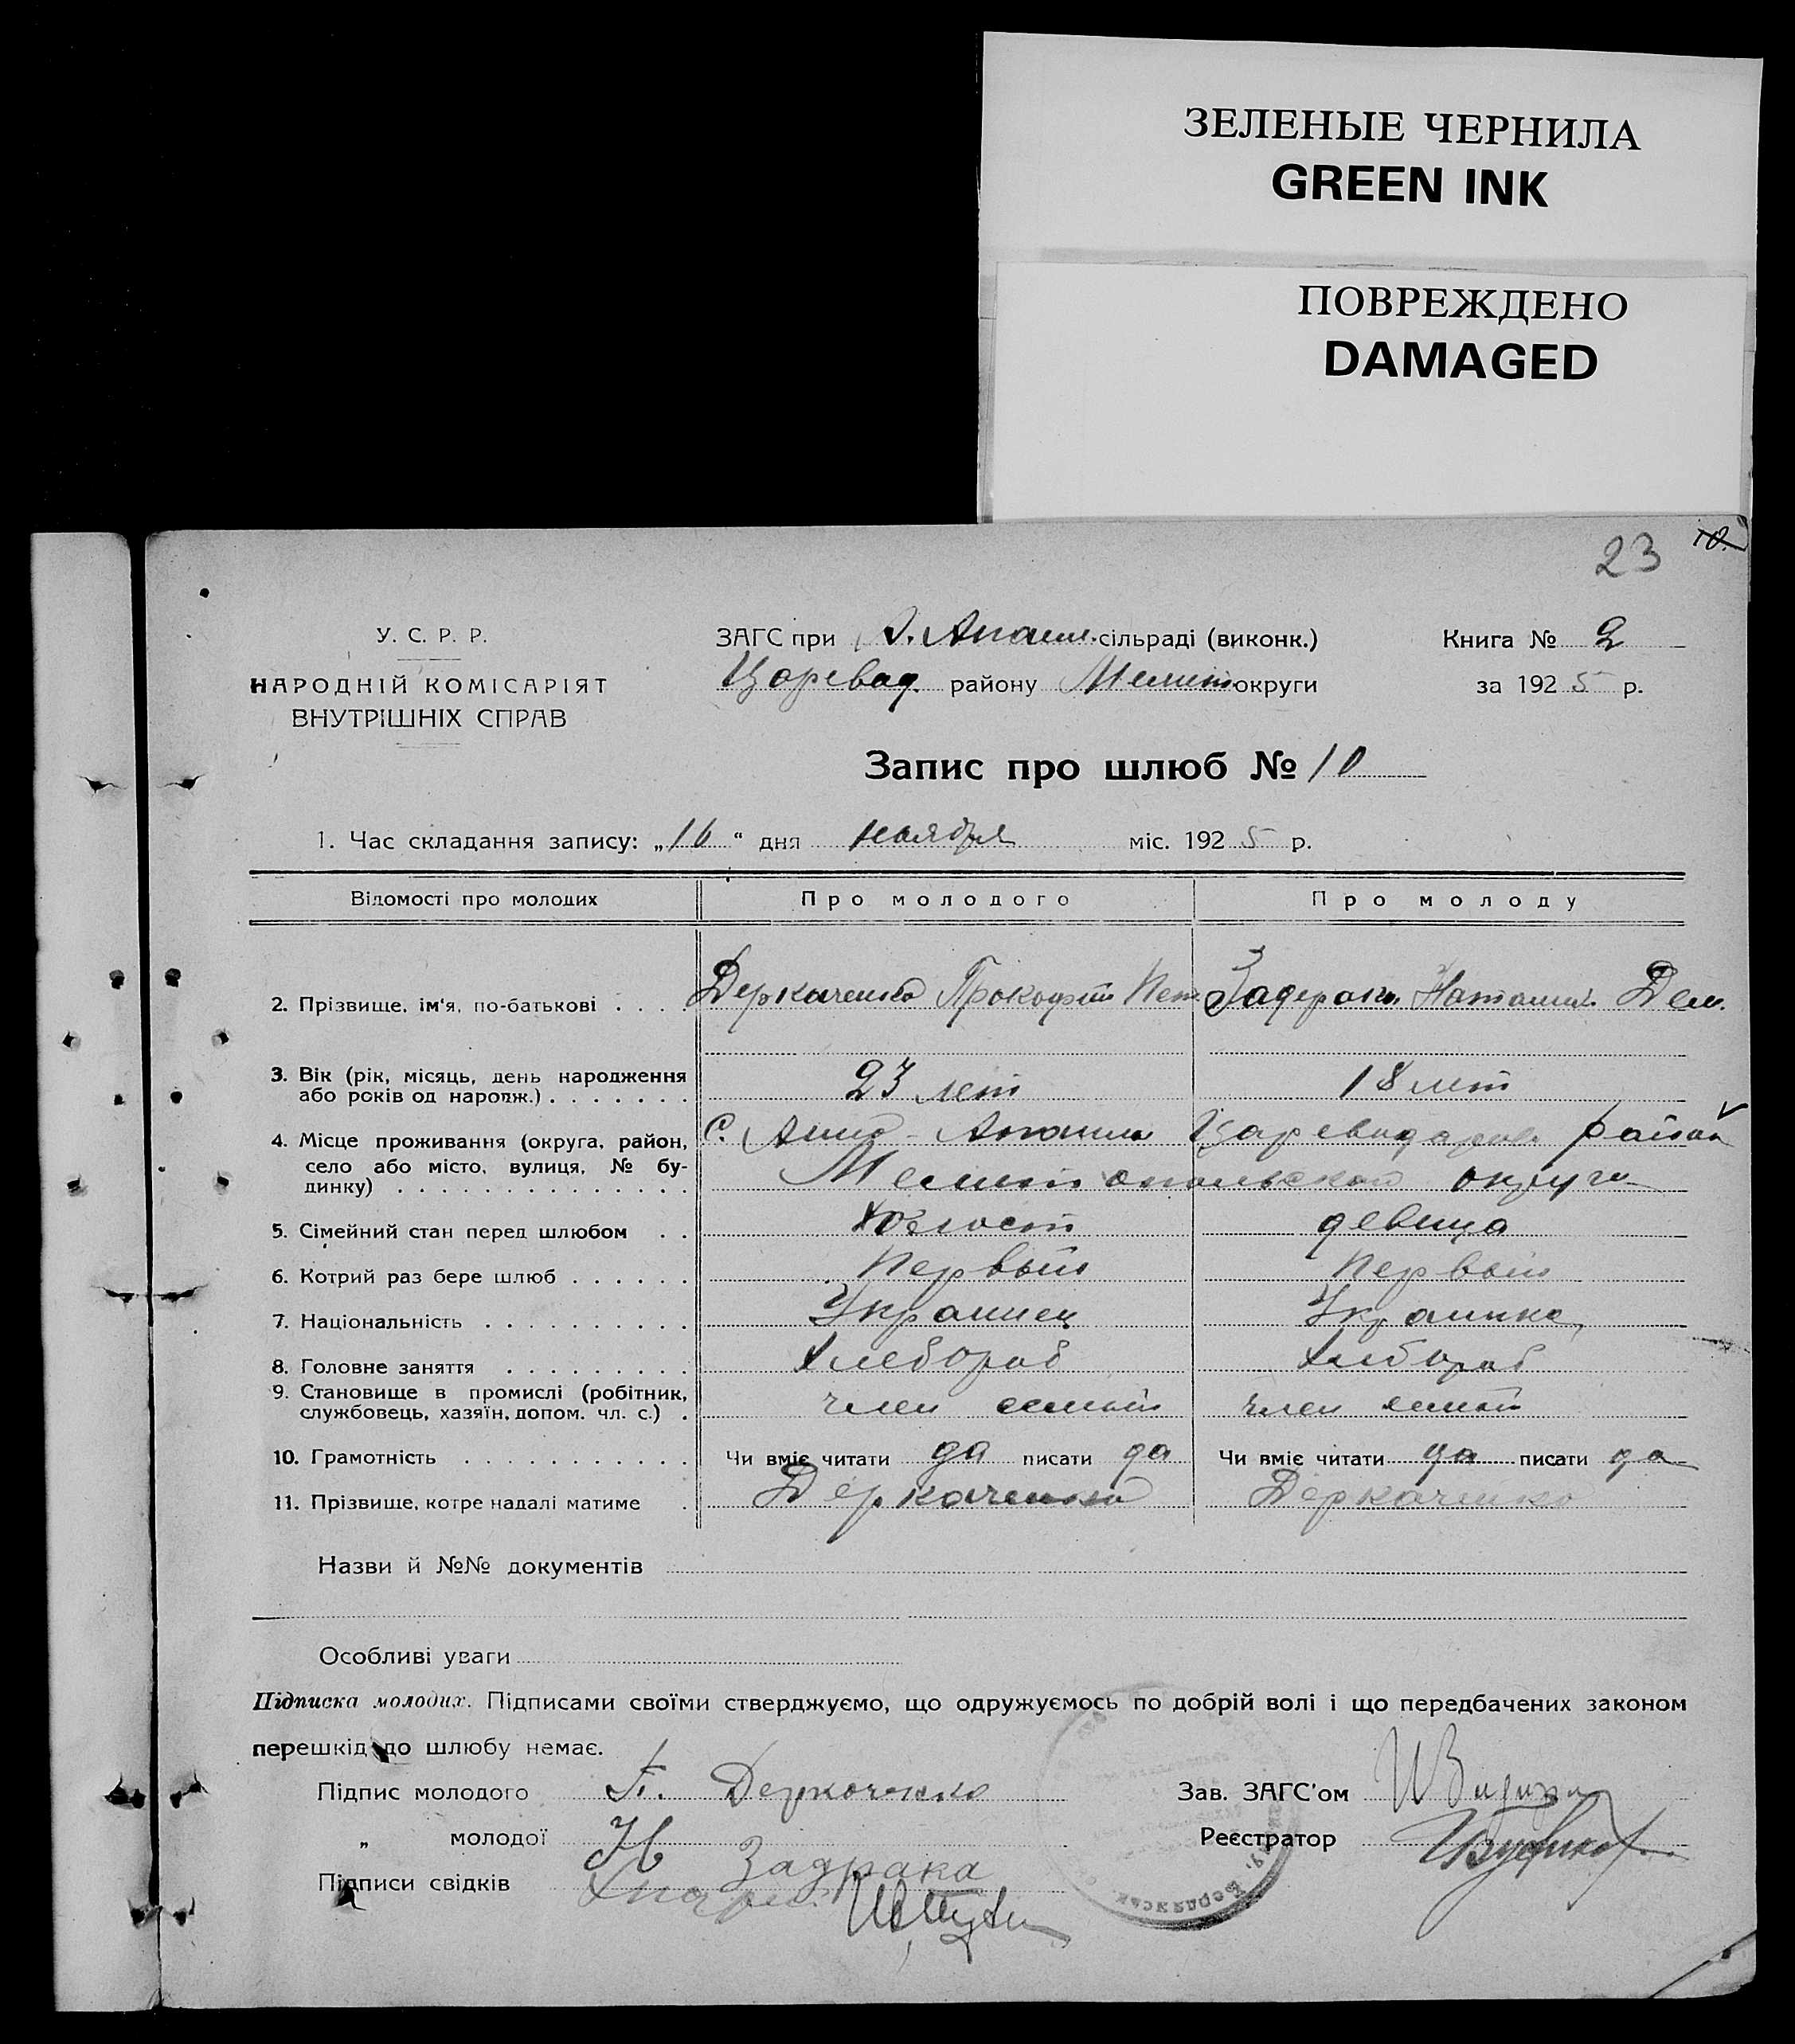 ЗЕЛЕНЫЕ ЧЕРНИЛА
GREEN INK
ПОВРЕЖДЕНО
DAMAGED
23 10
У. С. Р. Р.
НАРОДНІЙ КОМІСАРІЯТ
ВНУТРІШНІХ СПРАВ
ЗАГС при А. Апанл. сільраді (виконк.)
Царевод. району Мелит. округи
Книга № 2
за 1925 р.
Запис про шлюб № 10
1. Час складання запису: „16“ дня ноября міс. 1925 р.
Відомості про молодих Про молодого Про молоду
2. Прізвище, ім'я, по-батькові Деркаченко Прокофий Пет. Задерак. Наталия Дем.
3. Вік (рік, місяць, день народження або років од народж.) 23 лет 18 лет
4. Місце проживання (округа, район, село або місто, вулиця, № будинку) с. Анно- район
Мелитопольской округи
5. Сімейний стан перед шлюбом холост девица
6. Котрий раз бере шлюб Первый Первый
7. Національність Украинец Украинка
8. Головне заняття хлебороб хлебороб
9. Становище в промислі (робітник, службовець, хазяїн, допом. чл. с.) член семьи член семьи
10. Грамотність Чи вміє читати да писати да Чи вміє читати да писати да
11. Прізвище, котре надалі матиме Деркаченко Деркаченко
Назви й №№ документів
Особливі уваги
Підписка молодих. Підписами своїми стверджуємо, що одружуємось по добрій волі і що передбачених законом
перешкід до шлюбу немає.
Підпис молодого П. Деркаченко
„ молодої Н Задрака
Підписи свідків
Зав. ЗАГС'ом
Реєстратор